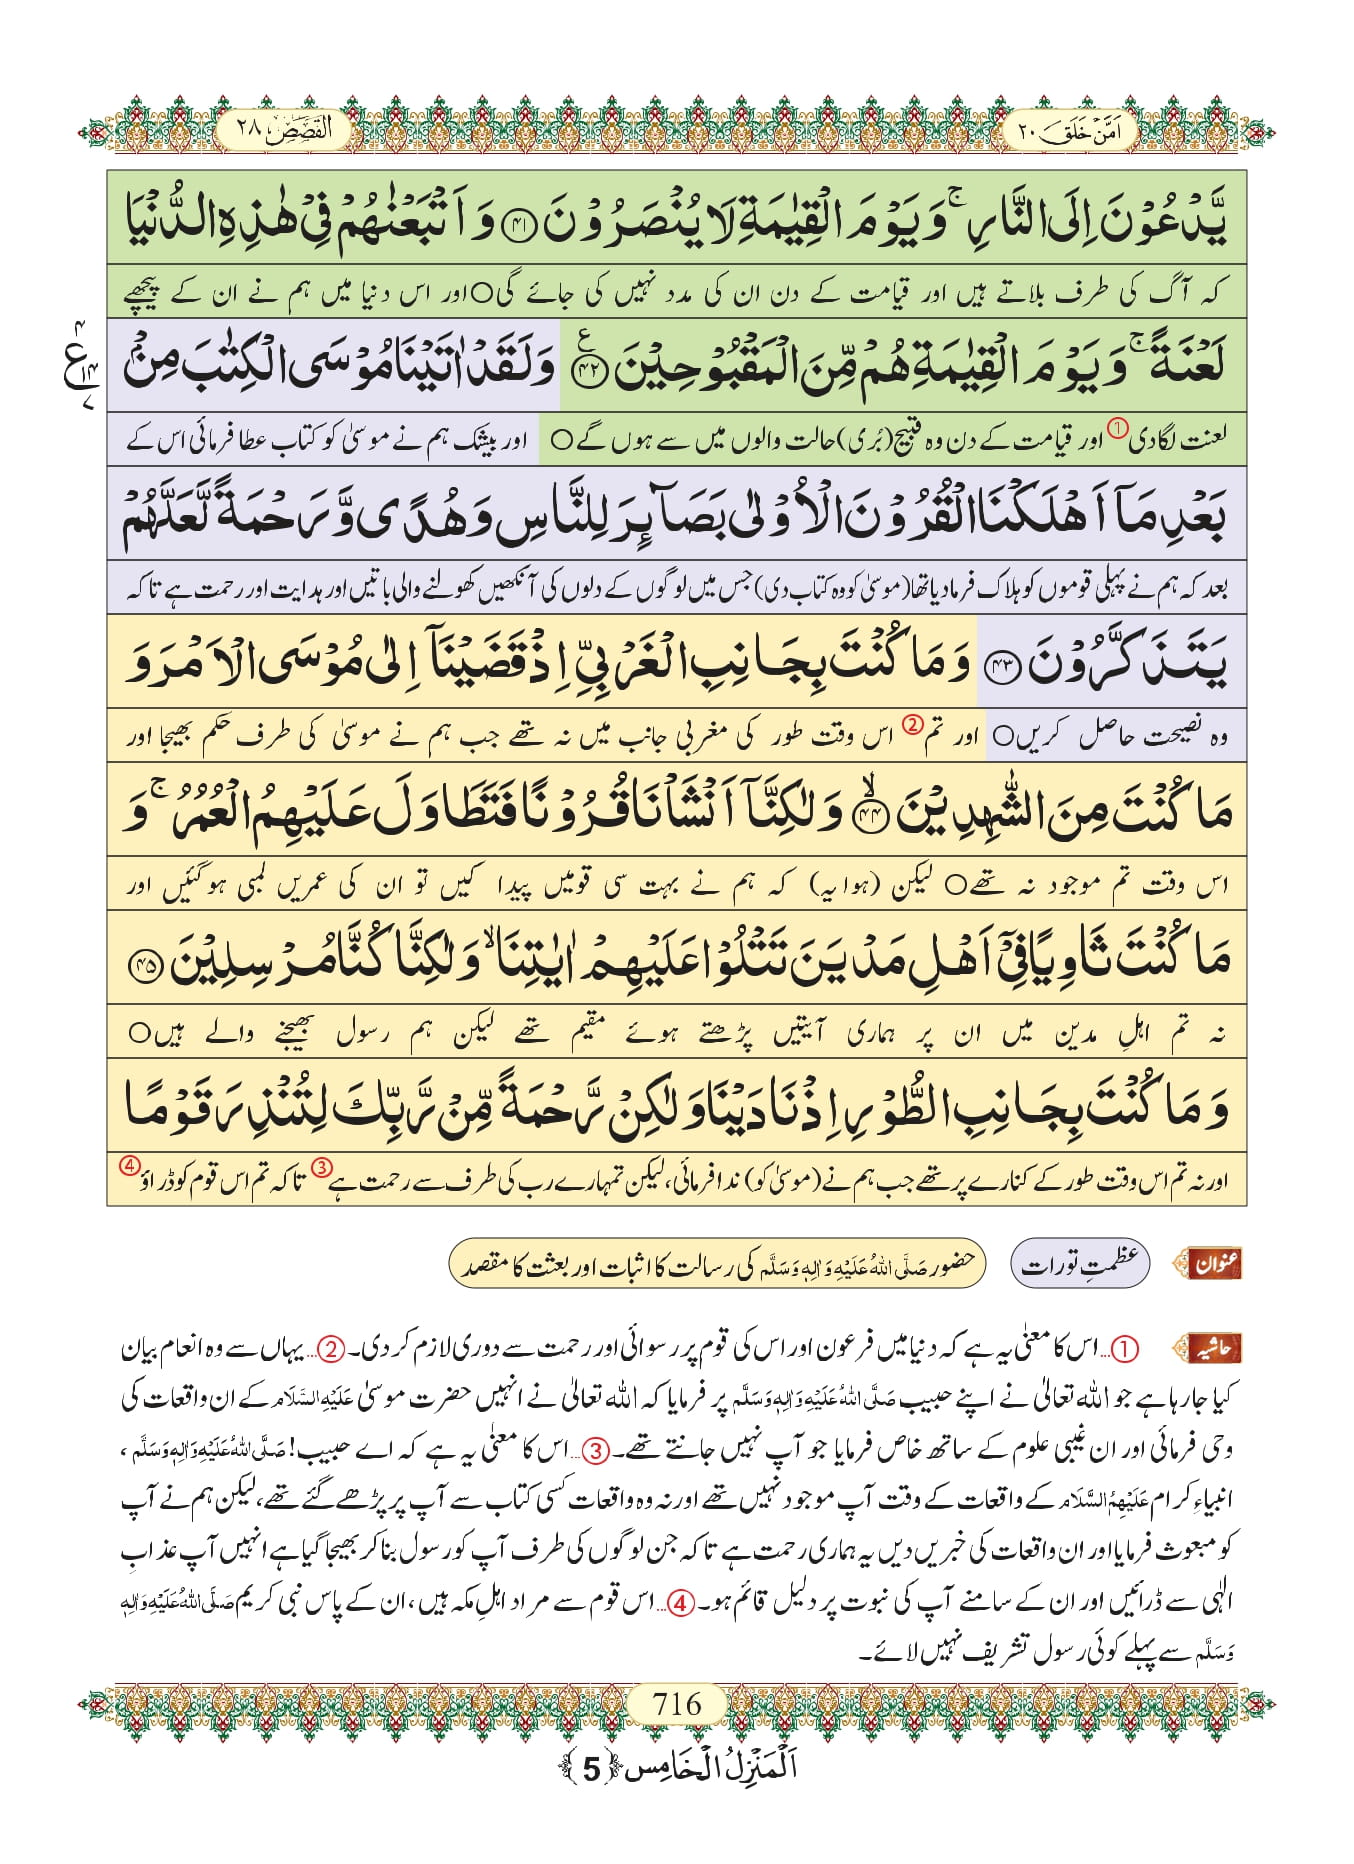 اَمَّنْ خَلَقَ ۲۰
الْقَصَص ۲۸
يَّدْعُوْنَ اِلَى النَّارِ ۚ وَ يَوْمَ الْقِيٰمَةِ لَا يُنْصَرُوْنَ ﴿۴۱﴾ وَ اَتْبَعْنٰهُمْ فِیْ هٰذِهِ الدُّنْيَا
کہ آگ کی طرف بلاتے ہیں اور قیامت کے دن ان کی مدد نہیں کی جائے گی○ اور اس دنیا میں ہم نے ان کے پیچھے
لَعْنَةً ۚ وَ يَوْمَ الْقِيٰمَةِ هُمْ مِّنَ الْمَقْبُوْحِيْنَ ﴿۴۲﴾ ع وَ لَقَدْ اٰتَيْنَا مُوْسَى الْكِتٰبَ مِنْۢ
۴ ع ۱۴ ۷
لعنت لگادی① اور قیامت کے دن وہ قبیح (بُری) حالت والوں میں سے ہوں گے○ اور بیشک ہم نے موسیٰ کو کتاب عطا فرمائی اس کے
بَعْدِ مَاۤ اَهْلَكْنَا الْقُرُوْنَ الْاُوْلٰى بَصَآىِٕرَ لِلنَّاسِ وَ هُدًى وَّ رَحْمَةً لَّعَلَّهُمْ
بعد کہ ہم نے پہلی قوموں کو ہلاک فرمادیا تھا (موسیٰ کو وہ کتاب دی) جس میں لوگوں کے دلوں کی آنکھیں کھولنے والی باتیں اور ہدایت اور رحمت ہے تاکہ
يَتَذَكَّرُوْنَ ﴿۴۳﴾ وَ مَا كُنْتَ بِجَانِبِ الْغَرْبِیِّ اِذْ قَضَيْنَاۤ اِلٰى مُوْسَى الْاَمْرَ وَ
وہ نصیحت حاصل کریں○ اور تم② اس وقت طور کی مغربی جانب میں نہ تھے جب ہم نے موسیٰ کی طرف حکم بھیجا اور
مَا كُنْتَ مِنَ الشّٰهِدِيْنَ ﴿۴۴﴾ ۙ وَ لٰكِنَّاۤ اَنْشَاْنَا قُرُوْنًا فَتَطَاوَلَ عَلَيْهِمُ الْعُمُرُ ۚ وَ
اس وقت تم موجود نہ تھے○ لیکن (ہوا یہ) کہ ہم نے بہت سی قومیں پیدا کیں تو ان کی عمریں لمبی ہوگئیں اور
مَا كُنْتَ ثَاوِيًا فِیْۤ اَهْلِ مَدْيَنَ تَتْلُوْا عَلَيْهِمْ اٰيٰتِنَا ۙ وَ لٰكِنَّا كُنَّا مُرْسِلِيْنَ ﴿۴۵﴾
نہ تم اہلِ مدین میں ان پر ہماری آیتیں پڑھتے ہوئے مقیم تھے لیکن ہم رسول بھیجنے والے ہیں○
وَ مَا كُنْتَ بِجَانِبِ الطُّوْرِ اِذْ نَادَيْنَا وَ لٰكِنْ رَّحْمَةً مِّنْ رَّبِّكَ لِتُنْذِرَ قَوْمًا
اور نہ تم اس وقت طور کے کنارے پر تھے جب ہم نے (موسیٰ کو) ندا فرمائی، لیکن تمہارے رب کی طرف سے رحمت ہے③ تاکہ تم اس قوم کو ڈراؤ④
عنوان عظمتِ تورات حضور صَلَّى اللهُ عَلَيْهِ وَاٰلِهٖ وَسَلَّم کی رسالت کا اثبات اور بعثت کا مقصد
حاشیہ ①...اس کا معنٰی یہ ہے کہ دنیا میں فرعون اور اس کی قوم پر رسوائی اور رحمت سے دوری لازم کر دی۔ ②...یہاں سے وہ انعام بیان
کیا جارہا ہے جو اللہ تعالیٰ نے اپنے حبیب صَلَّى اللهُ عَلَيْهِ وَاٰلِهٖ وَسَلَّم پر فرمایا کہ اللہ تعالیٰ نے انہیں حضرت موسیٰ عَلَيْهِ السَّلَام کے ان واقعات کی
وحی فرمائی اور ان غیبی علوم کے ساتھ خاص فرمایا جو آپ نہیں جانتے تھے۔ ③...اس کا معنٰی یہ ہے کہ اے حبیب! صَلَّى اللهُ عَلَيْهِ وَاٰلِهٖ وَسَلَّم ،
انبیاءِ کرام عَلَيْهِمُ السَّلَام کے واقعات کے وقت آپ موجود نہیں تھے اور نہ وہ واقعات کسی کتاب سے آپ پر پڑھے گئے تھے، لیکن ہم نے آپ
کو مبعوث فرمایا اور ان واقعات کی خبریں دیں یہ ہماری رحمت ہے تاکہ جن لوگوں کی طرف آپ کو رسول بنا کر بھیجا گیا ہے انہیں آپ عذابِ
الٰہی سے ڈرائیں اور ان کے سامنے آپ کی نبوت پر دلیل قائم ہو۔ ④...اس قوم سے مراد اہلِ مکہ ہیں، ان کے پاس نبی کریم صَلَّى اللهُ عَلَيْهِ وَاٰلِهٖ
وَسَلَّم سے پہلے کوئی رسول تشریف نہیں لائے۔
716
اَلْمَنْزِلُ الْخَامِس ﴿5﴾